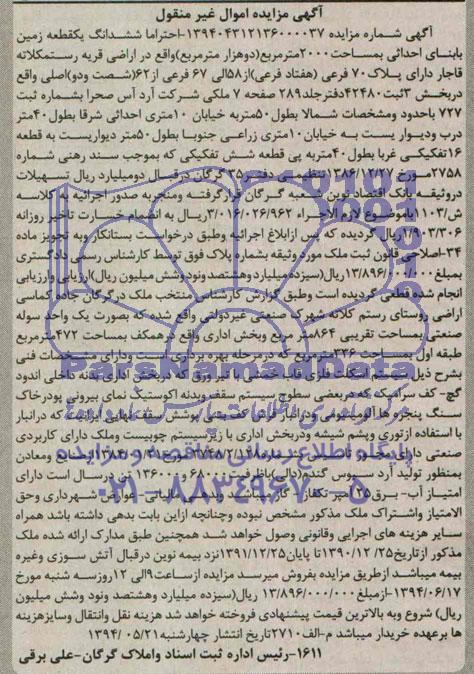 آگهی مزایده اموال غیر منقول
آگهی شماره مزایده ۱۳۹۴۰۴۳۱۲۱۳۶۰۰۰۰۳۷-احتراما ششدانگ یکقطعه زمین
بابنای احداثی بمساحت ۲۰۰۰مترمربع(دوهزار مترمربع)واقع در اراضی قریه رستمکلاته
قاجار دارای پلاک۷۰ فرعی (هفتاد فرعی)از۵۸الی ۶۷ فرعی از۶۲(شصت ودو)اصلی واقع
دربخش ۳ثبت۴۲۴۸۰دفترجلد۲۸۹ صفحه ۷ ملکی شرکت آرد آس صحرا بشماره ثبت
۷۲۷ باحدود ومشخصات شمالا بطول۵۰متربه خیابان ۱۰متری احداثی شرقا بطول۴۰متر
درب ودیوار یست به خیابان۱۰متری زراعی جنوبا بطول۵۰متر دیواریست به قطعه
۱۶تفکیکی غربا بطول۴۰متربه پی قطعه شش تفکیکی که بموجب سند رهنی شماره
۲۷۵۸مورخ ۱۳۸۶/۱۲/۲۷تنظیمی دفتر۳۵ گرگان درقبال دومیلیارد ریال تسهیلات
دروثیقه بانک اقتصاد نوین شعبه گرگان قرارگرفته ومنجربه صدور اجرائیه به کلاسه
ش/۱۱۰۳باموضوع لازم الاجراء ۳/۰۱۶/۰۲۶/۹۶۲ریال به انضمام خسارت تاخیر روزانه
ریال گردیده که پس ازابلاغ اجرائیه وطبق درخواست بستانکار وبه تجویز ماده
۳۴-اصلاحی قانون ثبت ملک مورد وثیقه بشماره پلاک فوق توسط کارشناس رسمی دادگستری
بمبلغ۱۳/۸۹۶/۰۰۰/۰۰۰ریال(سیزده میلیاردوهشتصدونود وشش میلیون ریال)ارزیابی وارزیابی
انجام شده قطعی گردیده است وطبق گزارش کارشناس منتخب ملک درگرگان جاده کماسی
اراضی روستای رستم کلاته شهرک صنعتی غیردولتی واقع شده که بصورت یک واحد سوله
صنعتی بمساحت تقریبی ۸۶۴متر مربع وبخش اداری واقع درهمکف بمساحت ۴۷۲مترمربع
طبقه اول بمساحت ۳۳۶مترمربع که درمرحله بهره برداری است ودارای مشخصات فنی
بشرح ذیل سیستم اسکلت فلزی قاب خمشی با تیر ورق که دربخش اداری بدنه داخلی اندود
گچ- کف سرامیک که دربعضی سطوح سیستم سقف وبدنه اکوستیک نمای بیرونی پودرخاک
سنگ پنجره ها آلومینیومی ودرانبار فاقد کف بتنی پوشش سقف نهایی ایرانیت که درانبار
با استفاده ازتوری وپشم شیشه ودربخش اداری با زیرسیستم چوبیست وملک دارای کاربردی
صنعتی دارای مجوز صنایع ومعادن
بمنظور تولید آرد سبوس گندم(دالی)باظرفیت ۶۸۰۰ تن درسال است دارای
امتیاز آب- برق۲۵آمپر تکفاز- گاز میباشد وبدهی مالیاتی- عوارض شهرداری وحق
الامتیاز واشتراک ملک مذکور مشخص نبوده وچنانچه ازاین بابت بدهی داشته باشد همراه
سایر هزینه های اجرایی وقانونی وصول خواهد شد همچنین طبق مدارک ارائه شده ملک
مذکور ازتاریخ۱۳۹۰/۱۲/۲۵تا پایان۱۳۹۱/۱۲/۲۵نزد بیمه نوین درقبال آتش سوزی وغیره
بیمه میباشد ازطریق مزایده بفروش میرسد مزایده ازساعت۹الی ۱۲روزسه شنبه مورخ
۱۳۹۴/۰۶/۱۷-ازمبلغ۱۳/۸۹۶/۰۰۰/۰۰۰ ریال(سیزده میلیارد وهشتصد ونود وشش میلیون
ریال) شروع وبه بالاترین قیمت پیشنهادی فروخته خواهد شد هزینه نقل وانتقال وسایرهزینه
ها برعهده خریدار میباشد م-الف۲۷۱۰تاریخ انتشار چهارشنبه۱۳۹۴/۰۵/۲۱
۱۶۱۱-رئیس اداره ثبت اسناد واملاک گرگان-علی برقی
ParsNamadData
پایگاه اطلاع رسانی مناقصه و مزایده
۰۲۱-۸۸۳۴۹۶۷۰-۵